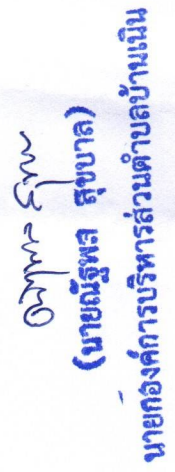 (นายณัฐพล สุขบาล)
นายกองค์การบริหารส่วนตำบลบ้านเนิน